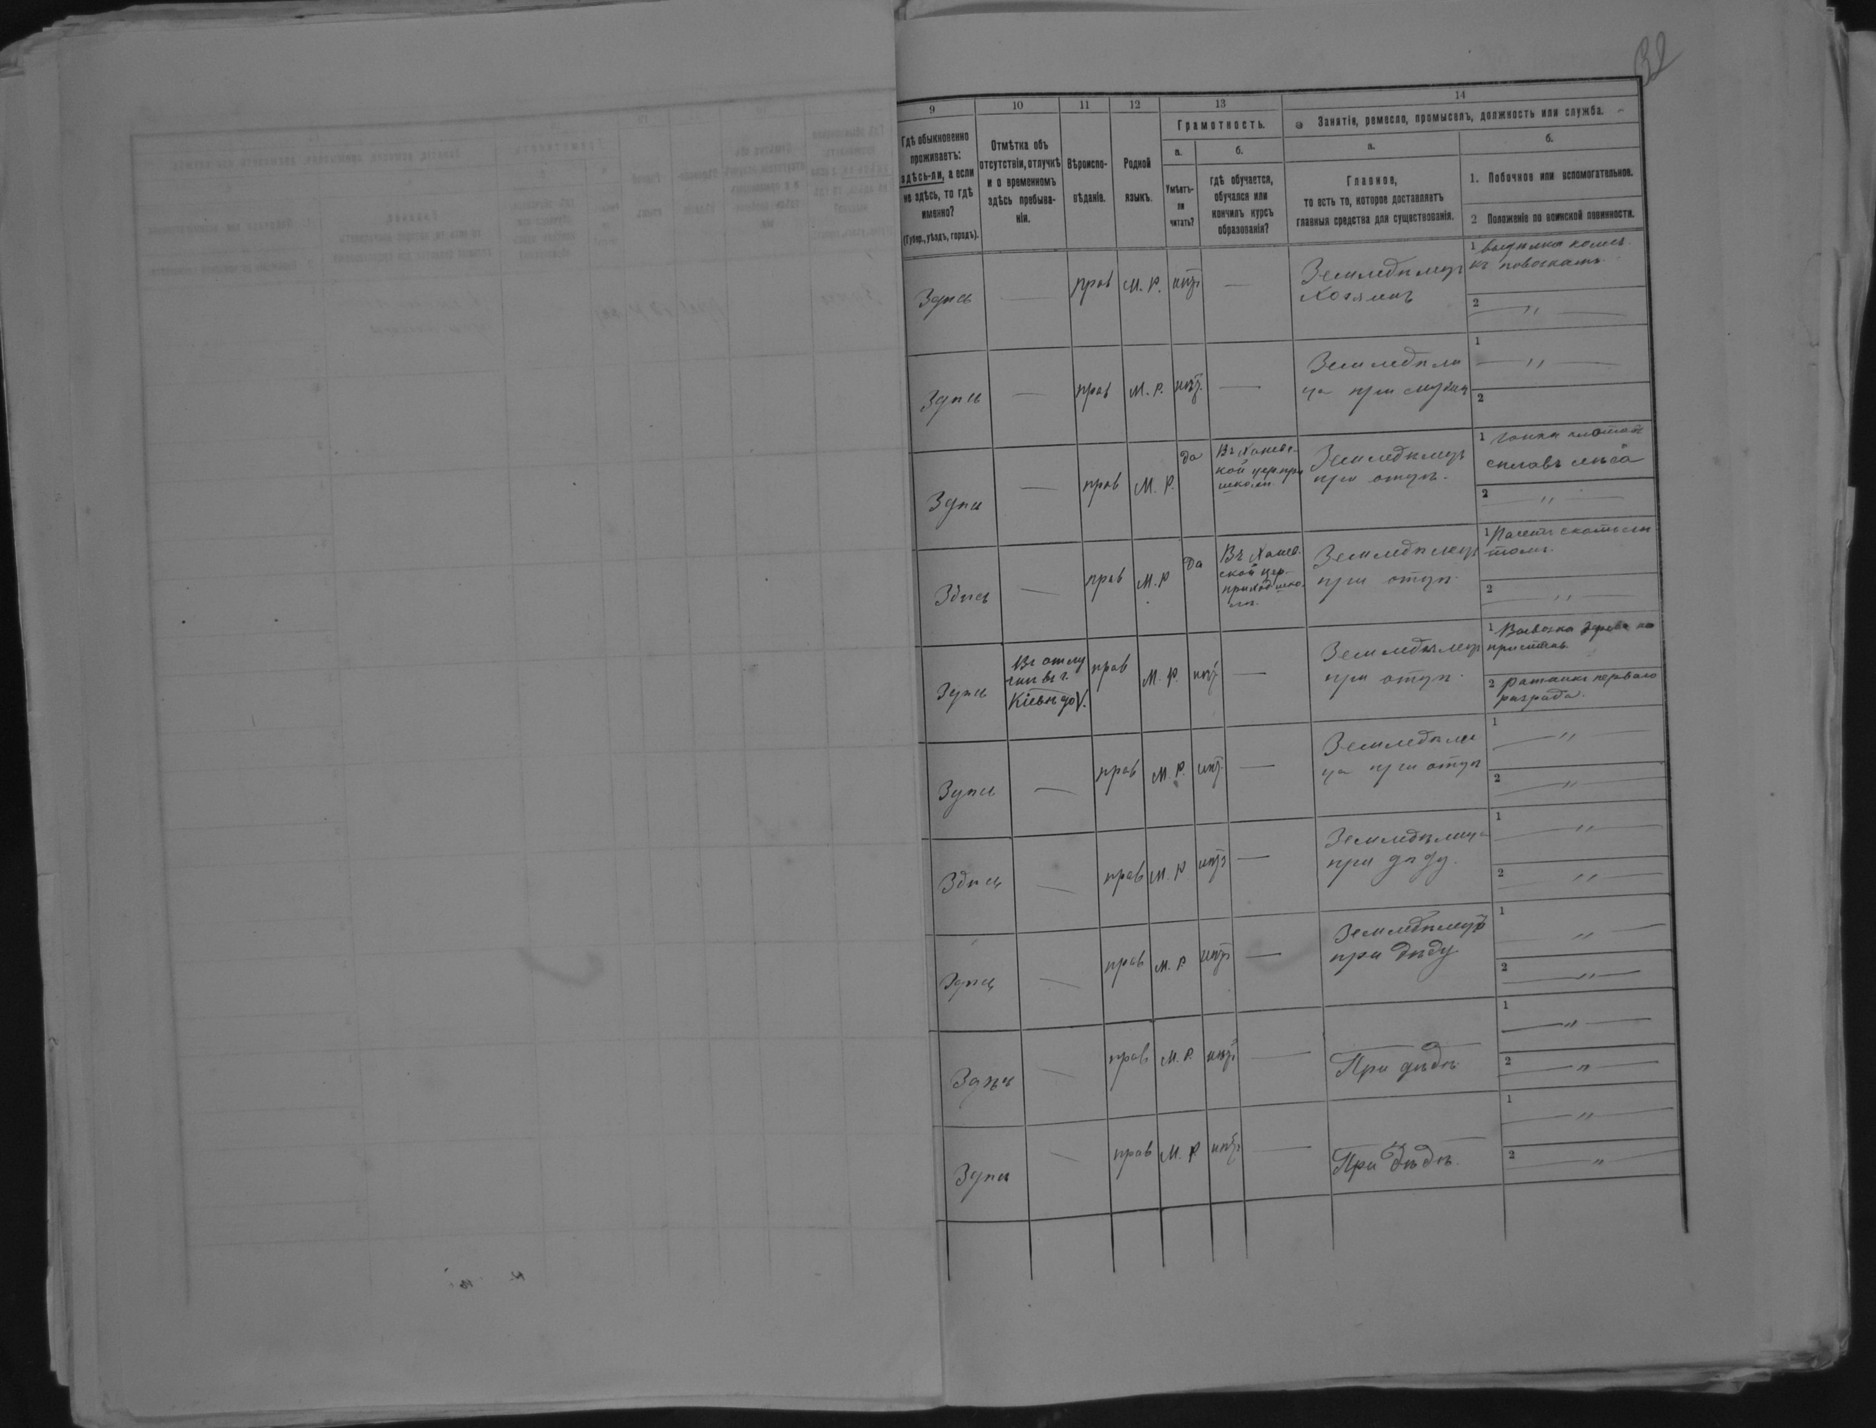 32
9 10 11 12 13 14
Гдѣ обыкновенно проживаетъ: здѣсь-ли, а если не здѣсь, то гдѣ именно? (Губер., уѣздъ, городъ).
Отмѣтка объ отсутствіи, отлучкѣ и о временномъ здѣсь пребываніи.
Вѣроисповѣданіе.
Родной языкъ.
Грамотность.
а. Умѣетъ-ли читать?
б. гдѣ обучается, обучался или кончилъ курсъ образованія?
Занятія, ремесло, промыселъ, должность или служба.
а. Главное, то есть то, которое доставляетъ главныя средства для существованія.
б.
1. Побочное или вспомогательное.
2 Положеніе по воинской повинности.
Здѣсь — прав М. Р. нѣтъ — Земледѣлецъ
Хозяинъ
1 выдѣлка колесъ
къ повозкамъ
2 — " —
Здѣсь — прав М. Р. нѣтъ — Земледѣли
ца при мужѣ
1 — " —
2
Здѣсь — прав М. Р. да Въ Ханев-
ской цер. при
школѣ
Земледѣлецъ
при отцѣ.
1 Гонка плотов
сплавъ лѣса
2 — " —
Здѣсь — прав М. Р да Въ Ханев-
ской цер.
приход. шко-
лѣ.
Земледѣлецъ
при отцѣ.
1
2 — " —
Здѣсь Въ отлу
чкѣ въ г.
Кіевѣ
прав М. Р. нѣтъ — Земледѣлецъ
при отцѣ.
1 Вывозка дерева на
пристань
2 ратникъ перваго
разряда.
Здѣсь — прав М. Р. нѣтъ — Земледѣли
ца при отцѣ
1 — " —
2 — " —
Здѣсь — прав М. Р нѣтъ — Земледѣлица
при дѣду.
1 — " —
2 — " —
Здѣсь — прав М. Р нѣтъ — Земледѣлецъ
при дѣду
1 — " —
2 — " —
Здѣсь — прав М. Р. нѣтъ — При дѣдѣ
1 — " —
2 — " —
Здѣсь — прав М. Р нѣтъ — При дѣдѣ.
1 — " —
2 — " —